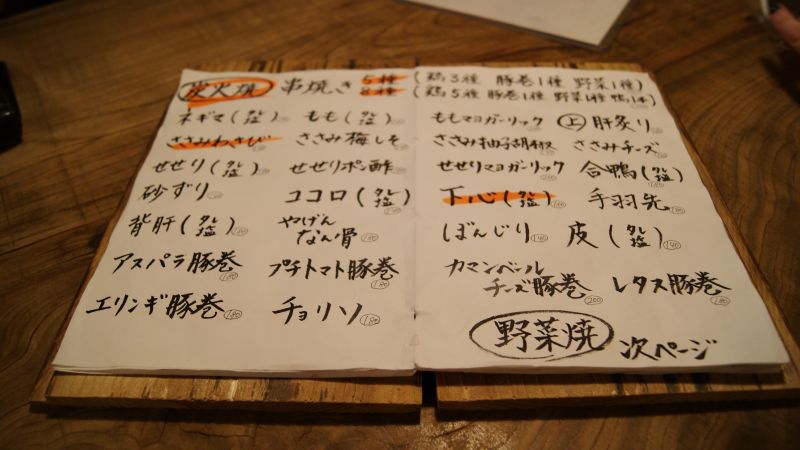 炭火焼 串焼き 5種 (鶏3種 豚巻1種 野菜1種)
8種 (鶏5種 豚巻1種 野菜1種 鴨1本)
ネギマ(タレ 塩) もも(タレ 塩)
ささみわさび ささみ梅しそ
せせり(タレ 塩) せせりポン酢
砂ずり ココロ(タレ 塩)
背肝(タレ 塩) やげんなん骨 180
アスパラ豚巻 180 プチトマト豚巻 180
エリンギ豚巻 180 チョリソ 180
ももマヨガーリック 上 肝炙り
ささみ柚子胡椒 ささみチーズ
せせりマヨガーリック 合鴨(タレ 塩)
下心(タレ 塩) 手羽先
ぼんじり 140 皮(タレ 塩) 140
カマンベールチーズ豚巻 200 レタス豚巻 180
野菜焼 次ページ